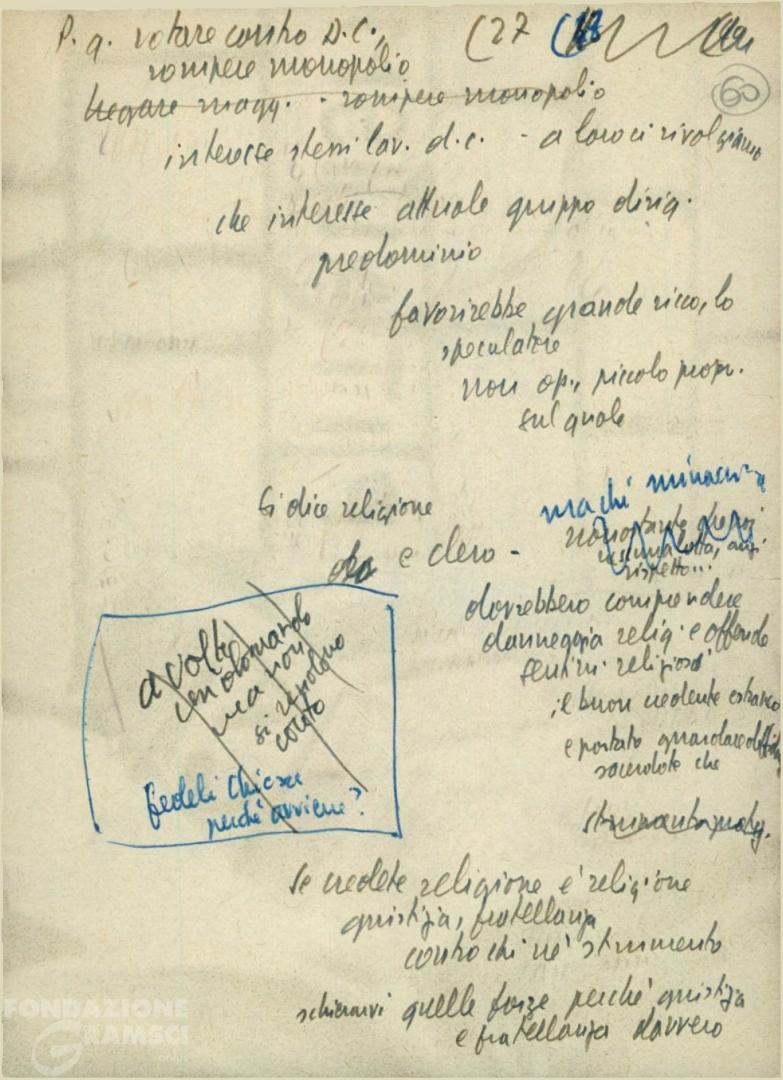 P. q. votare contro D.C., (27 (18
rompere monopolio
60
Negare magg. - rompere monopolio
interesse stessi lav. d.c. - a loro ci rivolgiamo
che interesse attuale gruppo dirig.
predominio
favorirebbe grande ricco, lo
speculatore
non op., piccolo propr.
sul quale
Si dice religione
ma chi minaccia
e clero - nonostante che noi
nessuna lotta, anzi
rispetto...
dovrebbero comprendere
danneggia relig. e offende
sentim. religiosi
il buon credente
è portato guardare
sacerdote che
a volte
domando
ma non
si rendono
conto
fedeli Chiesa
perché avviene?
Se credete religione è religione
giustizia, fratellanza
contro chi ne è strumento
schierarvi quelle forze perché giustizia
e fratellanza davvero
FONDAZIONE
GRAMSCI
onlus